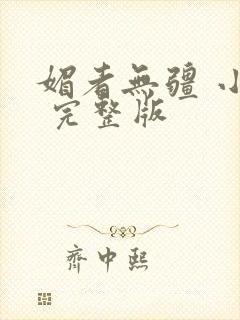 媚者無疆 小
完整版
齊中熙